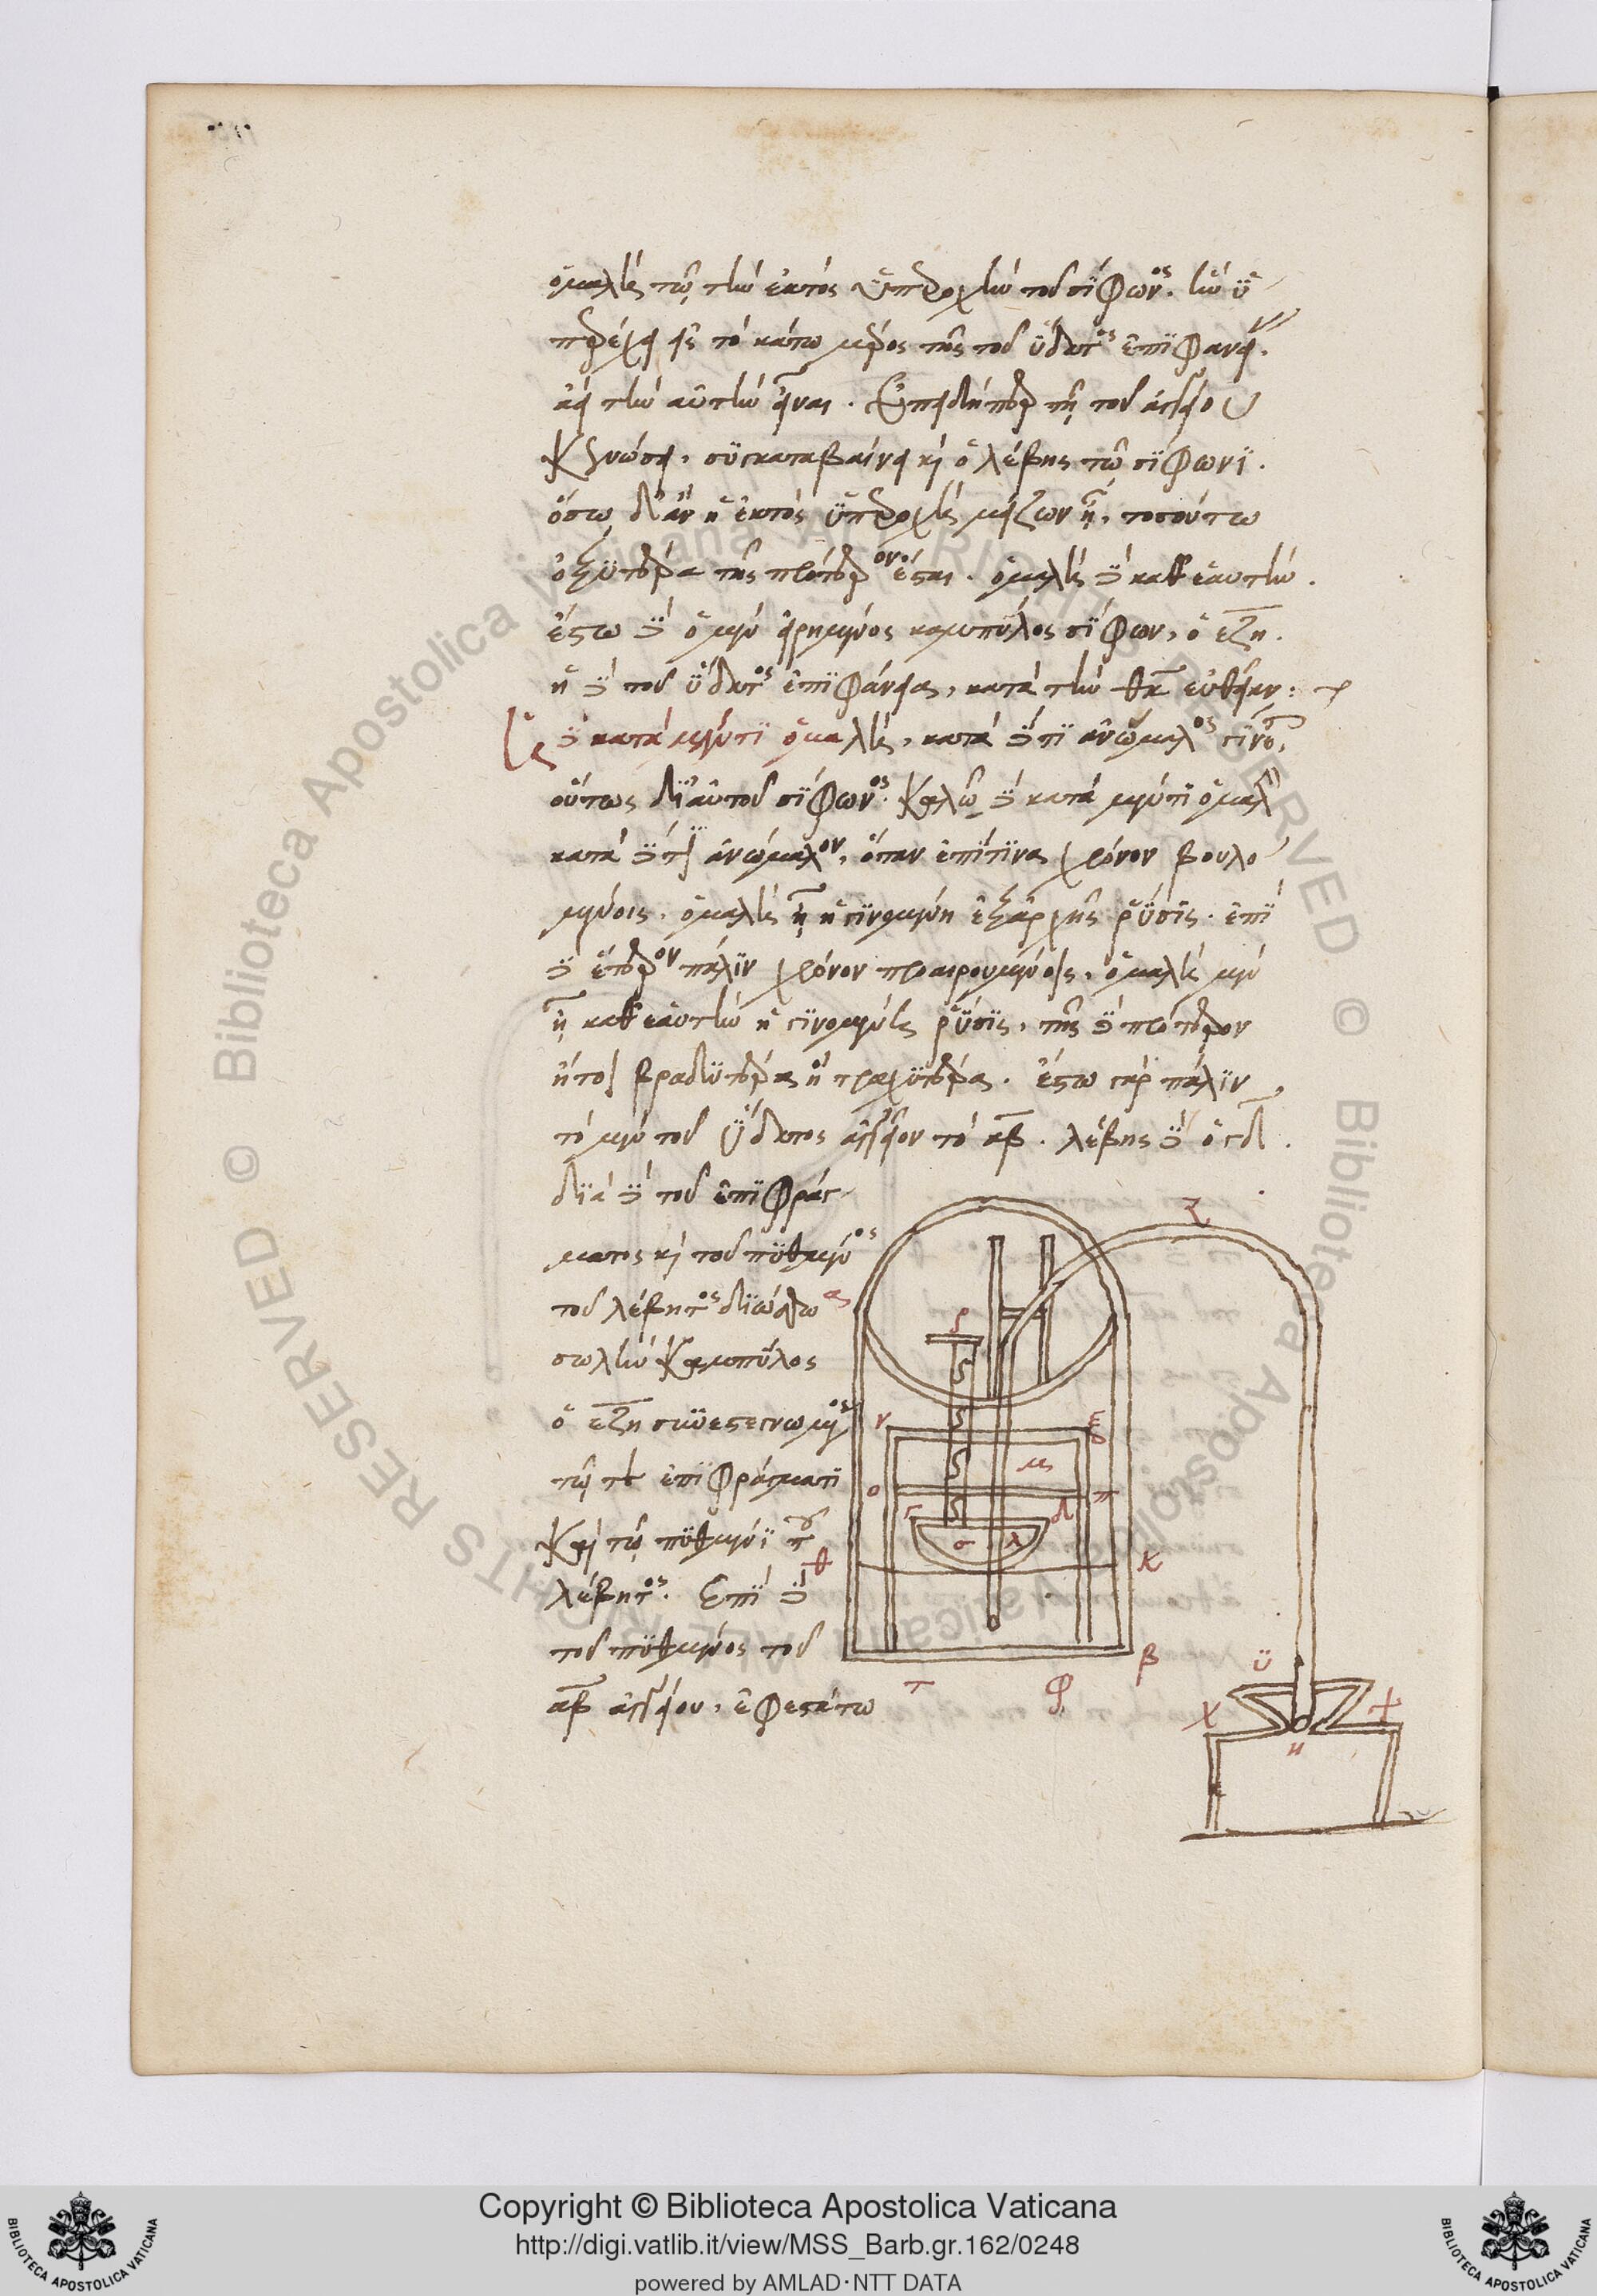 ὁμαλὴ τῷ τὴν ἐκτὸς ὑπεροχὴν τοῦ σίφωνος. ἣν ὑ
περέχει εἰς τὸ κάτω μέρος τῆς τοῦ ὕδατος ἐπιφανεί
ἀεὶ τὴν αὐτὴν εἶναι. Ἐπειδήπερ τῇ τοῦ ἀγγείου
κενώσει, συγκαταβαίνει καὶ ὁ λέβης τῷ σίφωνι.
ὅσῳ δ' ἂν ἡ ἐκτὸς ὑπεροχὴ μείζων ᾖ, τοσούτω
ὀξυτέρα τῆς πρότερον ἔσται. ὁμαλὴ δὲ καθ' ἑαυτήν.
ἔστω δὲ ὁ μὲν εἰρημένος καμπύλος σίφων, ὁ εζη.
ἡ δὲ τοῦ ὕδατος ἐπιφάνεια, κατὰ τὴν θκ εὐθεῖαν:
δὲ κατὰ μέν τι ὁμαλὴ, κατὰ δέ τι ἀνώμαλος γίνε
οὕτως δι' αὐτοῦ σίφωνος. καλῶ δὲ κατὰ μέν τι ὁμαλ
κατὰ δέ τι ἀνώμαλον, ὅταν ἐπί τινα χρόνον βουλο
μένοις, ὁμαλὴ ᾖ ἡ γινομένη ἐξ ἀρχῆς ῥύσις. ἐπὶ
δὲ ἕτερον πάλιν χρόνον προαιρουμένοις, ὁμαλὴ μὲν
ᾖ καθ' ἑαυτὴν ἡ γινομένη ῥύσις, τῆς δὲ πρότερον
ἤτοι βραδυτέρα ἢ ταχυτέρα. ἔστω γὰρ πάλιν
τὸ μὲν τοῦ ὕδατος ἀγγεῖον τὸ αβ. λέβης δὲ ὁ γδ.
διὰ δὲ τοῦ ἐπιφράγ
ματος καὶ τοῦ πυθμένος
τοῦ λέβητος διώσθω
σωλὴν καμπύλος
ὁ εζη συνεστεγνωμένος
τῷ τε ἐπιφράγματι
καὶ τῷ πυθμένι τοῦ
λέβητος. Ἐπὶ δὲ
τοῦ πυθμένος τοῦ
αβ ἀγγείου, ἐφεστάτω
ζ
α
ρ
ν
ξ
μ
ο
π
γ
δ
σ
λ
θ
κ
β
τ
φ
υ
χ
η
Copyright © Biblioteca Apostolica Vaticana
http://digi.vatlib.it/view/MSS_Barb.gr.162/0248
powered by AMLAD·NTT DATA
BIBLIOTECA APOSTOLICA VATICANA
BIBLIOTECA APOSTOLICA VATICANA
© Biblioteca Apostolica Vaticana ALL RIGHTS RESERVED © Biblioteca Apostolica Vaticana ALL RIGHTS RESERVED